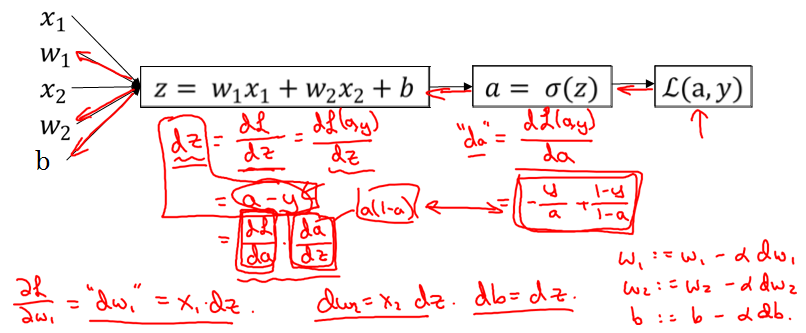 x₁
w₁
x₂
w₂
b
z = w₁x₁ + w₂x₂ + b
a = σ(z)
ℒ(a, y)
dz = dℒ/dz = dℒ(a,y)/dz
"da" = dℒ(a,y)/da
= a - y
a(1-a)
= -y/a + 1-y/1-a
= dℒ/da · da/dz
∂ℒ/∂w₁ = "dw₁" = x₁·dz.
dw₂ = x₂ dz.
db = dz.
w₁ := w₁ - α dw₁
w₂ := w₂ - α dw₂
b := b - α db.